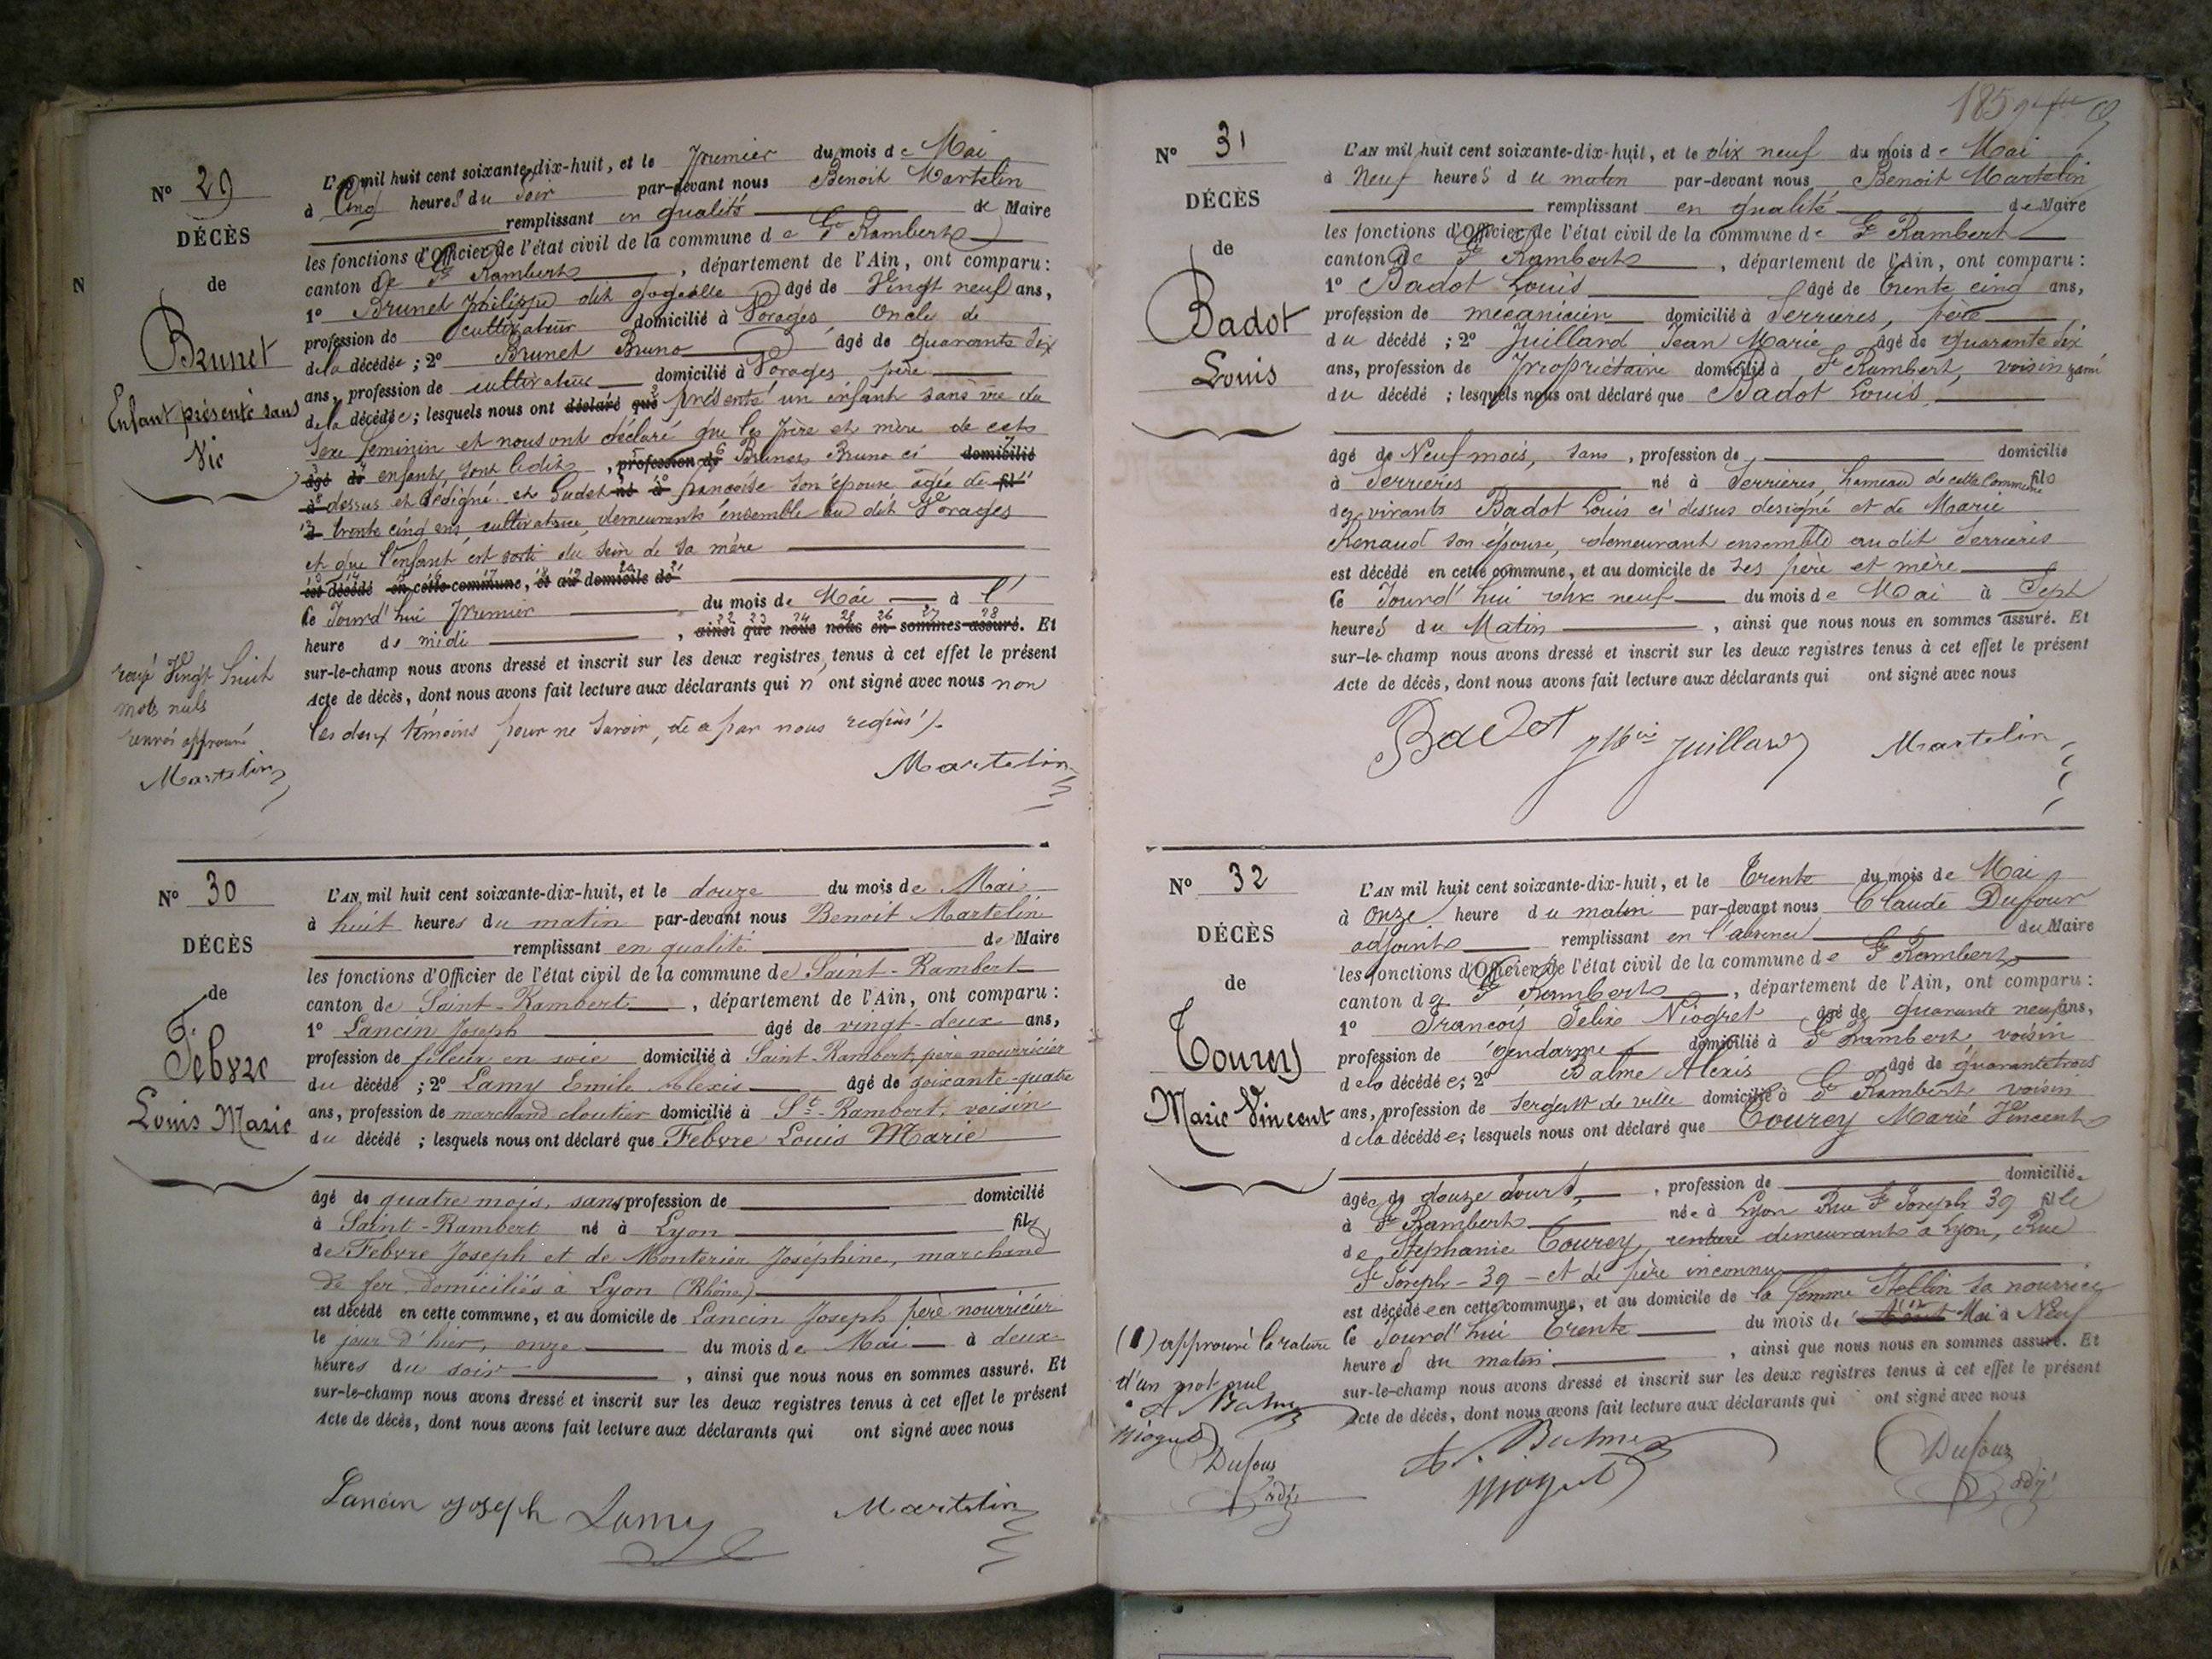 N° 29
DÉCÈS
de
Brunet
Enfant présenté sans
Vie
L'AN mil huit cent soixante-dix-huit, et le premier du mois de Mai
à Cinq heures du Soir par-devant nous Benoit Martelin
remplissant en qualité de Maire
les fonctions d'Officier de l'état civil de la commune de St Rambert
canton de St Rambert, département de l'Ain, ont comparu :
1° Brunet Philippe dit âgé de Vingt neuf ans,
profession de cultivateur domicilié à Vorages Oncle de
de la décédée ; 2° Brunet Bruno âgé de quarante six
ans, profession de cultivateur domicilié à Vorages père
de la décédée ; lesquels nous ont déclaré que présenté un enfant sans vie du
Sexe feminin et nous ont déclaré que les père et mère de cet
âgé de enfant, sont ledit, profession de Brunet Bruno ci domicilié
à dessus et désigné et Gudet né à francoise son épouse agée de fil
trente cinq ans, cultivatrice, demeurants ensemble au dit Vorages
et que l'enfant est sorti du sein de sa mère
est décédé en cette commune, et au domicile de
Ce Jourd'hui premier du mois de Mai à l'
heure de midi, ainsi que nous nous en sommes assuré. Et
sur-le-champ nous avons dressé et inscrit sur les deux registres tenus à cet effet le présent
Acte de décès, dont nous avons fait lecture aux déclarants qui n' ont signé avec nous non
les deux témoins pour ne savoir, de ce par nous requis).
Martelin
rayé Vingt huit
mots nuls
renvoi approuvé
Martelin
N° 30
DÉCÈS
de
Febvre
Louis Marie
L'AN mil huit cent soixante-dix-huit, et le douze du mois de Mai
à huit heures du matin par-devant nous Benoit Martelin
remplissant en qualité de Maire
les fonctions d'Officier de l'état civil de la commune de Saint-Rambert
canton de Saint-Rambert, département de l'Ain, ont comparu :
1° Lancin Joseph âgé de vingt-deux ans,
profession de fileur en soie domicilié à Saint-Rambert, père nourricier
du décédé ; 2° Lamy Emile Alexis âgé de soixante-quatre
ans, profession de marchand cloutier domicilié à St-Rambert, voisin
du décédé ; lesquels nous ont déclaré que Febvre Louis Marie
âgé de quatre mois, sans profession de domicilié
à Saint-Rambert né à Lyon fils
de Febvre Joseph et de Monterier Joséphine, marchand
de fer domiciliés à Lyon (Rhône)
est décédé en cette commune, et au domicile de Lancin Joseph père nourricier
le jour d'hier, onze du mois de Mai à deux
heures du soir, ainsi que nous nous en sommes assuré. Et
sur-le-champ nous avons dressé et inscrit sur les deux registres tenus à cet effet le présent
Acte de décès, dont nous avons fait lecture aux déclarants qui ont signé avec nous
Lancin Joseph Lamy Martelin
185
N° 31
DÉCÈS
de
Badot
Louis
L'AN mil huit cent soixante-dix-huit, et le dix neuf du mois de Mai
à Neuf heures du matin par-devant nous Benoit Martelin
remplissant en qualité de Maire
les fonctions d'Officier de l'état civil de la commune de St Rambert
canton de St Rambert, département de l'Ain, ont comparu :
1° Badot Louis âgé de trente cinq ans,
profession de mécanicien domicilié à Serrieres, père
du décédé ; 2° Juillard Jean Marie âgé de quarante six
ans, profession de Propriétaire domicilié à St Rambert, voisin
du décédé ; lesquels nous ont déclaré que Badot Louis,
âgé de Neuf mois, sans, profession de domicilié
à Serrieres né à Serrieres, hameau de cette Commune fils
des vivants Badot Louis ci dessus designé et de Marie
Renaud son épouse, demeurant ensemble au dit Serrieres
est décédé en cette commune, et au domicile de ses père et mère
Ce Jourd'hui dix neuf du mois de Mai à Sept
heures du Matin, ainsi que nous nous en sommes assuré. Et
sur-le-champ nous avons dressé et inscrit sur les deux registres tenus à cet effet le présent
Acte de décès, dont nous avons fait lecture aux déclarants qui ont signé avec nous
Badot Juillard Martelin
N° 32
DÉCÈS
de
Tourey
Marie Vincent
L'AN mil huit cent soixante-dix-huit, et le Trente du mois de Mai
à onze heure du matin par-devant nous Claude Dufour
adjoint remplissant en l'absence du Maire
les fonctions d'Officier de l'état civil de la commune de St Rambert
canton de St Rambert, département de l'Ain, ont comparu :
1° François Félix Niogret âgé de quarante neuf ans,
profession de gendarme domicilié à St Rambert voisin
de la décédée ; 2° Balme Alexis âgé de quarante trois
ans, profession de Sergent de ville domicilié à St Rambert voisin
de la décédée ; lesquels nous ont déclaré que Tourey Marie Vincent
âgée de douze jours, profession de domiciliée
à St Rambert née à Lyon Rue St Joseph 39 fille
de Stephanie Tourey, rentière demeurant à Lyon, Rue
St Joseph - 39 - et de père inconnu
est décédée en cette commune, et au domicile de la femme Stellin sa nourrice
Ce Jourd'hui Trente du mois de Mai à Neuf
heures du matin, ainsi que nous nous en sommes assuré. Et
sur-le-champ nous avons dressé et inscrit sur les deux registres tenus à cet effet le présent
Acte de décès, dont nous avons fait lecture aux déclarants qui ont signé avec nous
(1) approuvé la rature
d'un mot nul
A. Balme
Niogret
Dufour
adj
A. Balme
Niogret
Dufour
adj